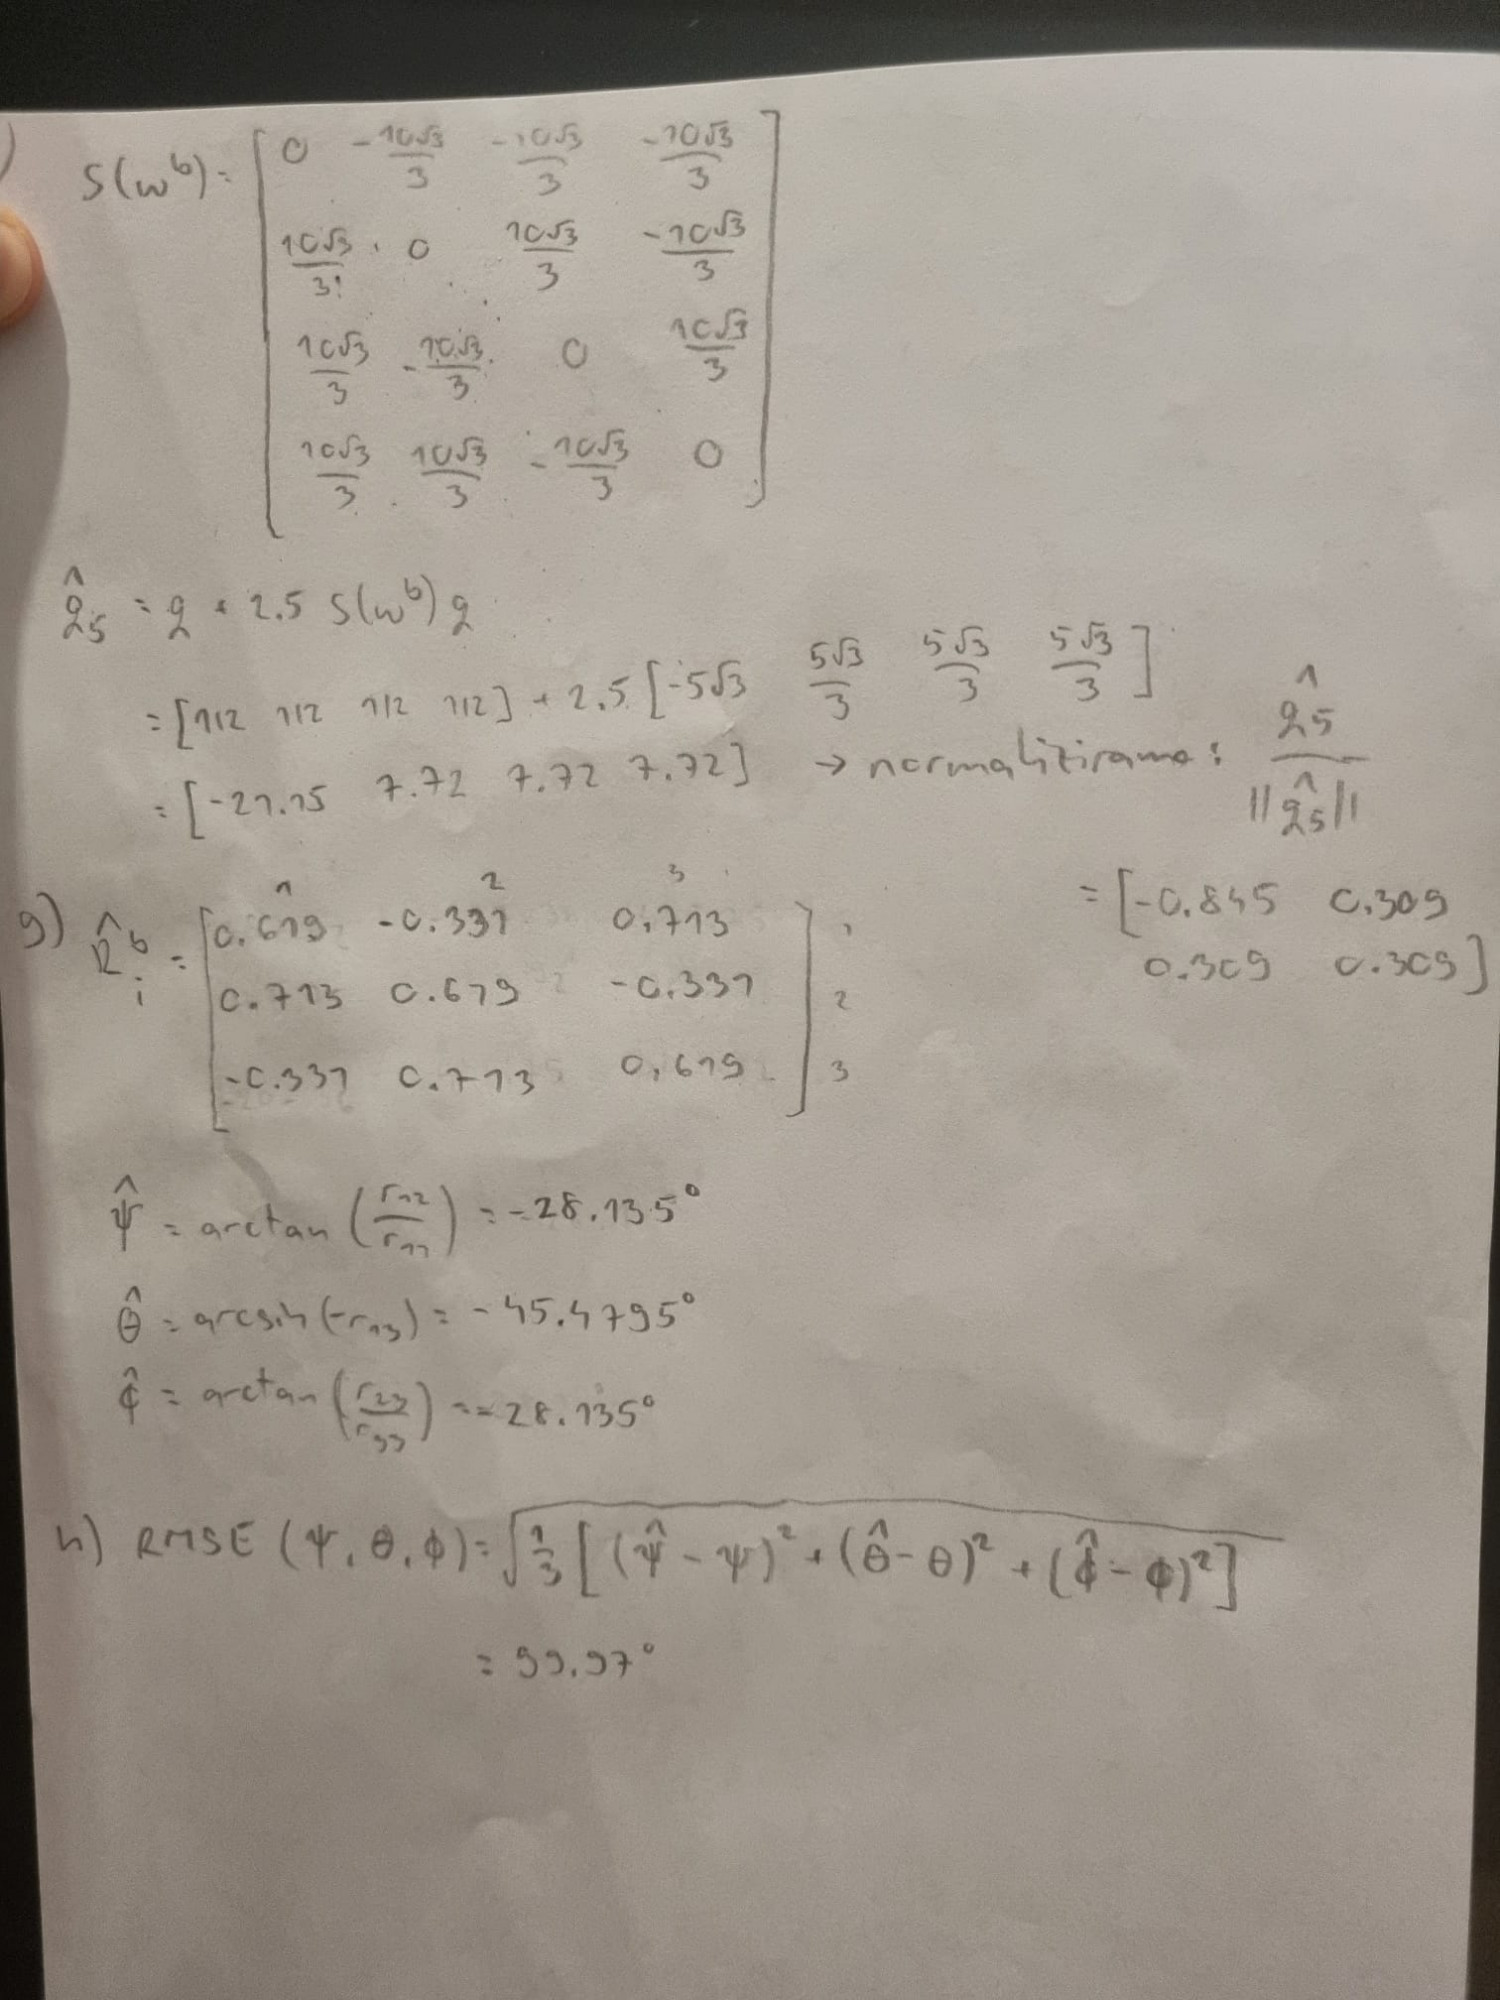 )
S(ω^b) = [ 0 -10√3/3 -10√3/3 -10√3/3
10√3/3 0 10√3/3 -10√3/3
10√3/3 -10√3/3 0 10√3/3
10√3/3 10√3/3 -10√3/3 0 ]
q̂₅ = q + 2.5 S(ω^b) q
= [1/2 1/2 1/2 1/2] + 2.5 [-5√3 5√3/3 5√3/3 5√3/3]
= [-21.15 7.72 7.72 7.72] → normaliziramo: q̂₅/||q̂₅||
= [-0.845 0.309
0.309 0.309]
g) R̂ᵢ^b = [ 0.619 -0.331 0.713 ] 1
0.713 0.619 -0.331 2
-0.331 0.713 0.619 3
1 2 3
ψ̂ = arctan (r₁₂/r₁₁) = -28.135°
θ̂ = arcsin (-r₁₃) = -45.4795°
ϕ̂ = arctan (r₂₃/r₃₃) = -28.135°
h) RMSE (ψ, θ, ϕ) = √(1/3 [(ψ̂ - ψ)² + (θ̂ - θ)² + (ϕ̂ - ϕ)²])
= 99.97°